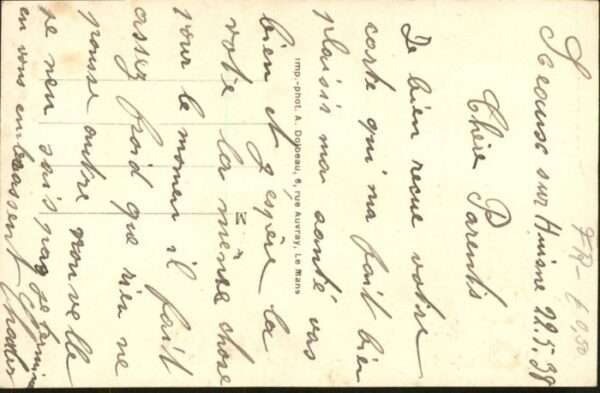 Sceause sur Huisne 22.5.38
Chère Parents
De bien recue votre
carte qui ma fait bien
plaisir ma santé vas
bien et j'espère la
votre la même chose
pour le moment il fait
assez froid que rien ne
pousse autre nouvelle
je nen sais pas je termine
en vous embrassent
Imp.-phot. A. Dolbeau, 6, rue Auvray, Le Mans
FR- £ 0,50